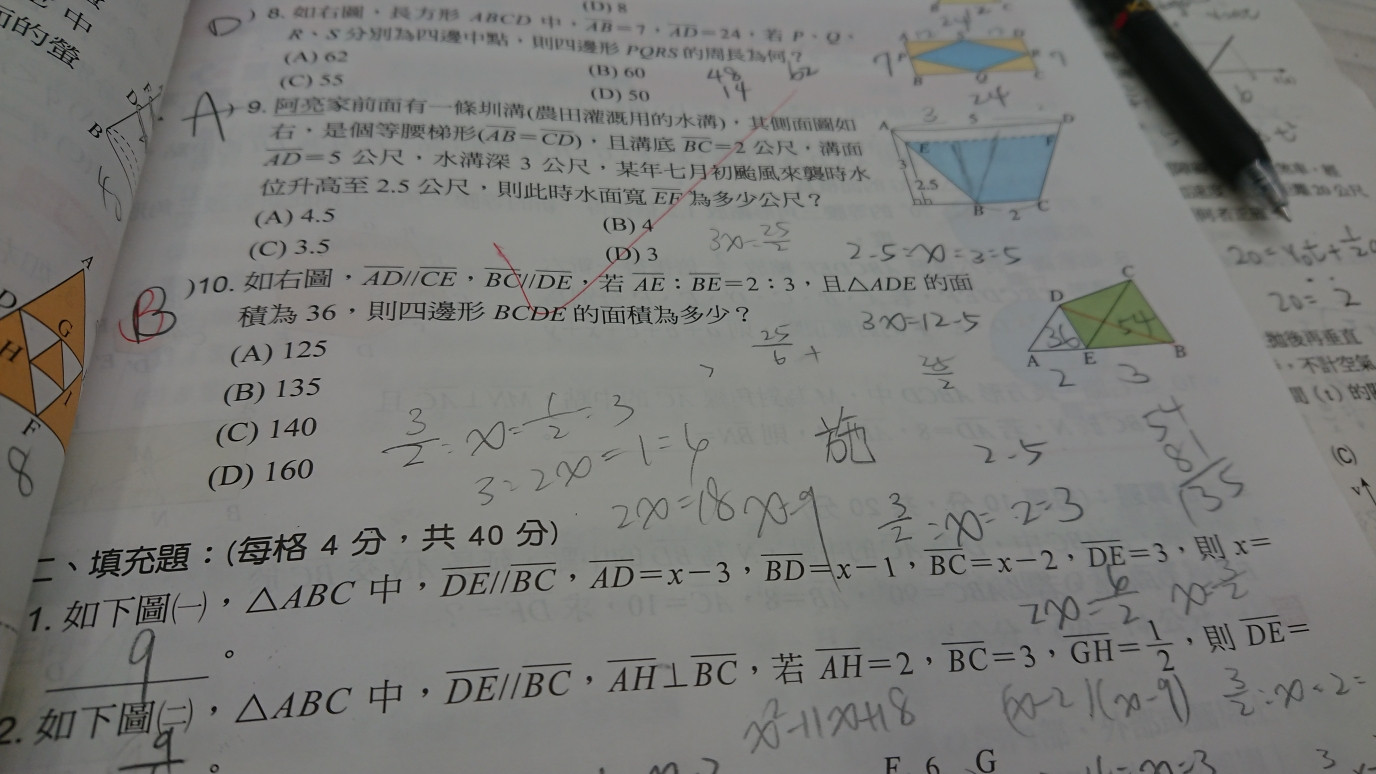 (D) 8
D ) 8. 如右圖，長方形 ABCD 中，AB=7，AD=24，若 P、Q、
R、S 分別為四邊中點，則四邊形 PQRS 的周長為何？
(A) 62
(B) 60
(C) 55
(D) 50
48
14
62
7
24
A ) 9. 阿亮家前面有一條圳溝(農田灌溉用的水溝)，其側面圖如
右，是個等腰梯形(AB=CD)，且溝底 BC=2 公尺，溝面
AD=5 公尺，水溝深 3 公尺，某年七月初颱風來襲時水
位升高至 2.5 公尺，則此時水面寬 EF 為多少公尺？
(A) 4.5
(B) 4
(C) 3.5
(D) 3
A 3 5 D
E F
3
2.5
B 2 C
3x=25/2
2.5=x=3=5
B )10. 如右圖，AD//CE，BC//DE，若 AE：BE=2：3，且△ADE 的面
積為 36，則四邊形 BCDE 的面積為多少？
(A) 125
(B) 135
(C) 140
(D) 160
3x=12.5
25/6 +
25/2
C
D
36 54
A E B
2 3
54
81
135
3/2=x=1/2=3
3=2x=1=6
2x=18 x=9
2.5
3/2=x=2=3
2x=6/2 x=3/2
二、填充題：(每格 4 分，共 40 分)
1. 如下圖㈠，△ABC 中，DE//BC，AD=x−3，BD=x−1，BC=x−2，DE=3，則 x=
9 。
2. 如下圖㈡，△ABC 中，DE//BC，AH⊥BC，若 AH=2，BC=3，GH=1/2，則 DE=
x²-11x+18
(x-2)(x-9)
3/2=x=2=
9 。
F 6 G
中
面的螢
D
B
A
D
G
H
I
F
8
20=V₀t+1/2
20=
拋後再垂直
，不計空氣
(C)